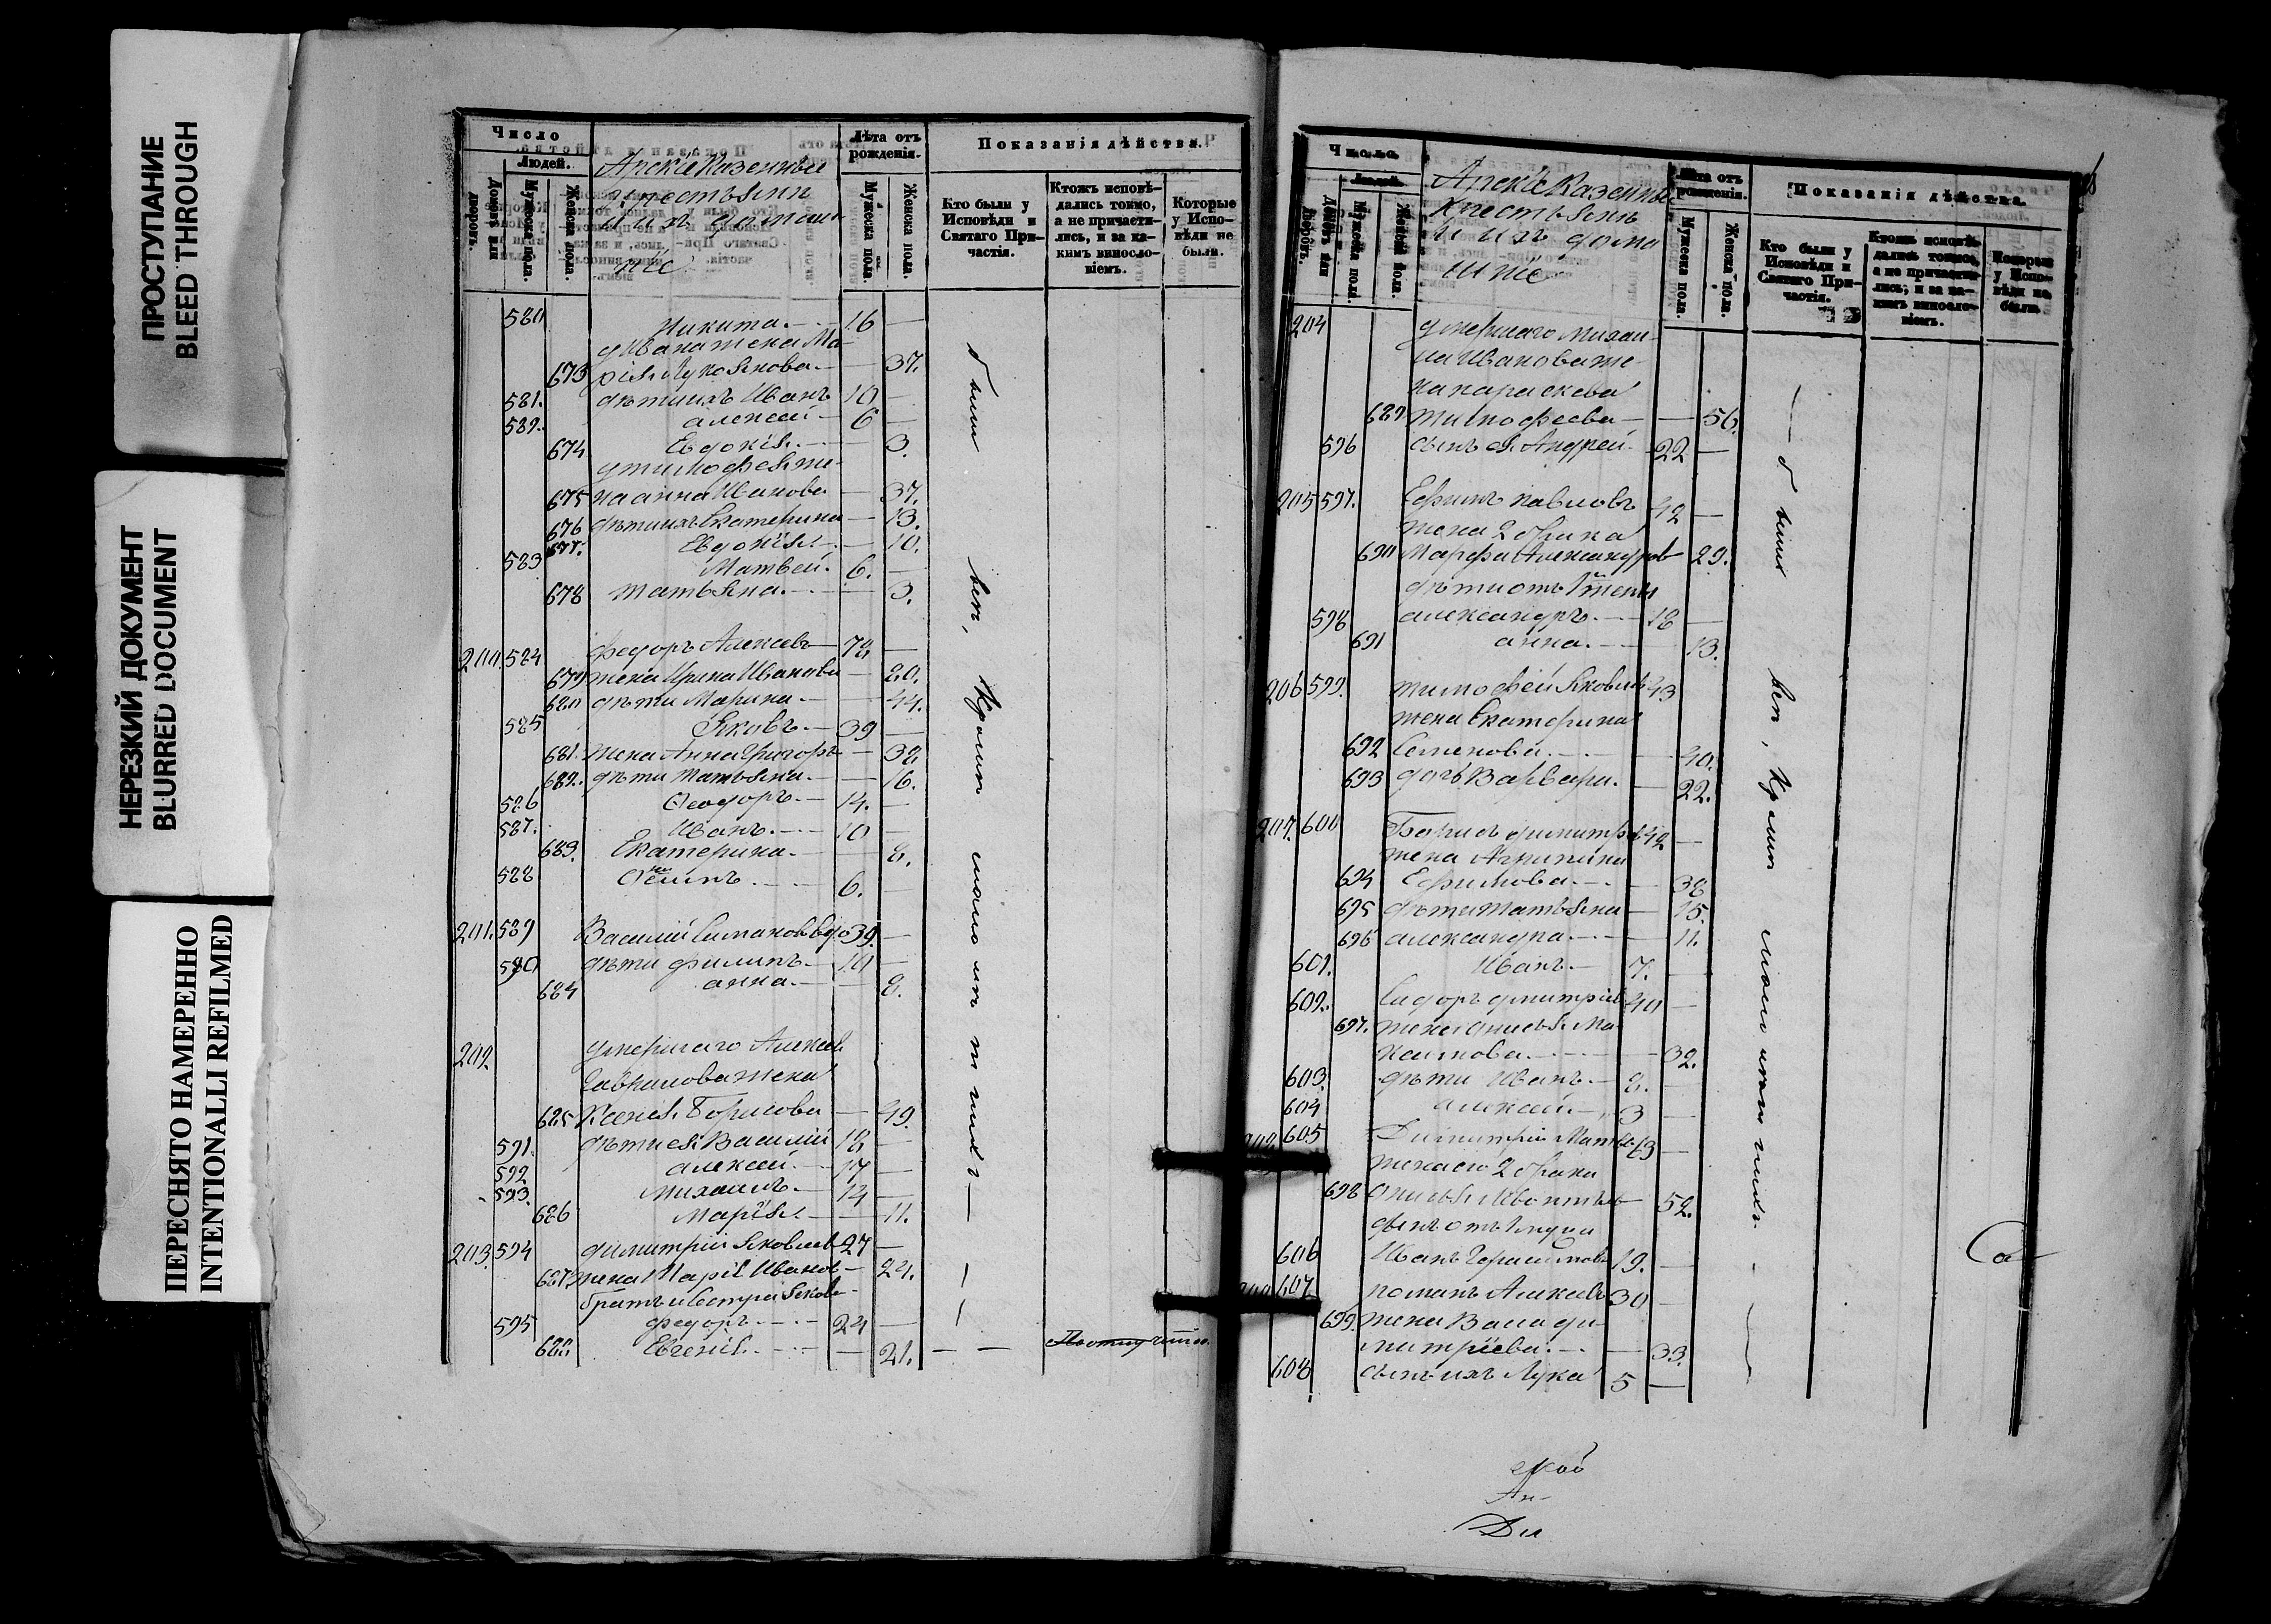 ПРОСТУПАНИЕ
BLEED THROUGH
НЕРЕЗКИЙ ДОКУМЕНТ
BLURRED DOCUMENT
ПЕРЕСНЯТО НАМЕРЕННО
INTENTIONALLI REFILMED
Число
Людей.
Домовъ или дворовъ.
Мужеска пола.
Женска пола.
Казенные
крестьяне
и ихъ домаш
ніе
Лѣта отъ рожденія.
Мужеска пола.
Женска пола.
Показанія дѣйства.
Кто были у Исповѣди и Святаго При-
частія.
Ктожъ исповѣ-
дались токмо,
а не причасти-
лись, и за ка-
кимъ виносло-
віемъ.
Которые
у Испо-
вѣди не
были.
580 Никита. 16 —
у Ивана жена Ма-
673 рія Лукьянова. — 37.
581. дѣти ихъ Иванъ 10 —
582. Алексей 6 —
674 Евдокія — 3.
у Тимофея же-
675 на Анна Иванова — 37.
676 дѣти ихъ Екатерина — 13.
677. Евдокія — 10.
583 Матвей. 6. —
678 Татьяна. — 3.
200. 584 Федоръ Алексеевъ 78 —
679 жена Ирина Иванова — 80.
680 дѣти Марина — 44.
585 Яковъ. 39 —
681. жена Анна Григорь — 38
682. дѣти Татьяна. — 16.
586 Феодоръ 14. —
587. Иванъ. 10 —
683. Екатерина. — 8.
588 6. —
201. 589 Василий Симановъ вдо 39. —
590 дѣти Филипъ 10 —
684 Анна. — 8.
202. умершаго Алексея
Гаврилова жена
685 Ксенія Борисова — 49.
591. дѣти ея Василій 18 —
592 Алексей. 17 —
593. Михаилъ. 14 —
686 Марія. — 11.
203. 594 Димитрій Яковлев 27 —
687 жена Марія Иванов — 24.
братъ и сестра Яковл
595 Федоръ. 24 —
688. Евгенія. — 21.
были
всѣ, кромѣ малолѣтнихъ —
Число
Людей.
Домовъ или дворовъ.
Мужеска пола.
Женска пола.
Казенные
крестьяне
и ихъ дома
шніе
Лѣта отъ рожденія.
Мужеска пола.
Женска пола.
Показанія дѣйства.
Кто были у
Исповѣди и
Святаго При-
частія.
Ктожъ исповѣ-
дались токмо,
а не причасти-
лись, и за ка-
кимъ виносло-
віемъ.
Которые
у Испо-
вѣди не
были.
204 умершаго Михаи-
ла Иванова же-
на Параскева
689 Тимофеева — 56.
596 сынъ ея Андрей 22 —
205 597. Ефимъ Павловъ 42 —
жена 2 брака
690 Марфа Александров 29.
дѣти отъ 1й жены
598 Александръ 18 —
691 Анна. — 13.
206 599. Тимофей Яковлев 43
жена Екатерина
692 Семенова. — 40.
693 дочь Варвара. — 22.
207. 600 Борисъ Димитрв 42 —
жена Агрипина
694 Ефимова. — 38
695 дѣти Татьяна — 15.
696 Александра — 11.
601. Иванъ. 7. —
602. Сидоръ Дмитріев 40 —
697. жена Анисья Ма
ксимова. — 32.
603. дѣти Иванъ 8. —
604 Алексей 3 —
605 Димитрій Матве 63 —
жена его 2 брака
698 52.
606 Иванъ Герасимов 19. —
607 Романъ Алексеев 30 —
699. жена Васса Ди-
митріева. — 33.
608 сынъ ихъ Лука 5 —
— были
всѣ, кромѣ малолѣтнихъ —